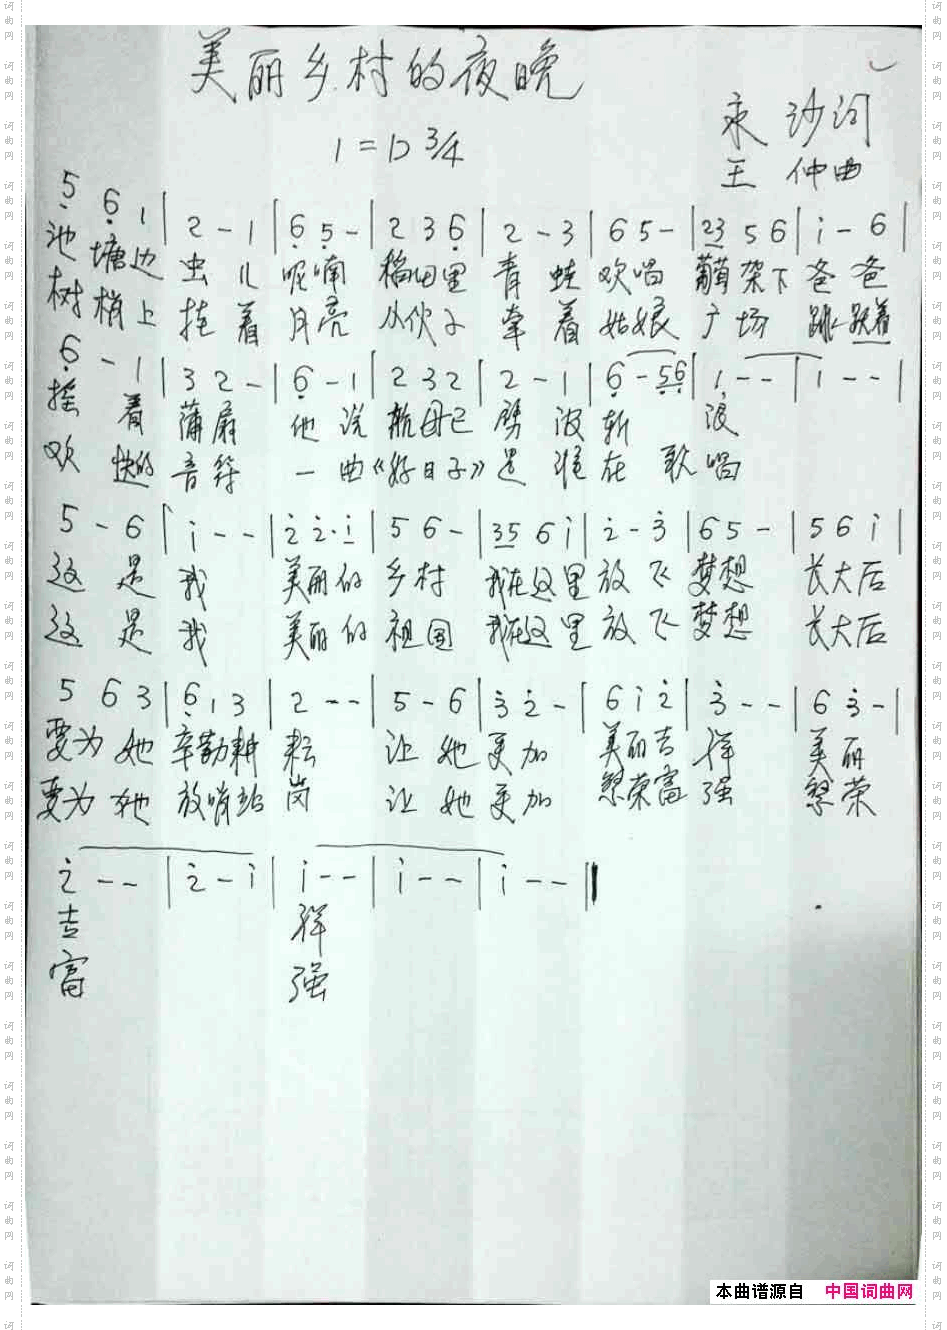 美丽乡村的夜晚
1=D 3/4
永沙词
王仲曲
5 6 1 | 2 - 1 | 6 5 - | 2 3 6 | 2 - 3 | 6 5 - | 23 5 6 | i - 6 |
池塘边 虫儿 呢喃 稻田里 青蛙 欢唱 葡萄架下 爸爸
树梢上 挂着 月亮 小伙子 牵着 姑娘 广场 跳跃着
6 - 1 | 3 2 - | 6 - 1 | 2 3 2 | 2 - 1 | 6 - 56 | 1 - - | 1 - - |
摇着 蒲扇 他说 航母已 劈波 斩 浪
欢快的 音符 一曲《好日子》是谁在 歌唱
5 - 6 | i - - | 2 2· i | 5 6 - | 35 6 i | 2 - 3 | 6 5 - | 5 6 i |
这是 我 美丽的 乡村 我在这里 放飞 梦想 长大后
这是 我 美丽的 祖国 我在这里 放飞 梦想 长大后
5 6 3 | 6 1 3 | 2 - - | 5 - 6 | 3 2 - | 6 i 2 | 3 - - | 6 3 - |
要为她 辛勤耕 耘 让她 更加 美丽吉 祥 美丽
要为她 放哨站 岗 让她 更加 繁荣富 强 繁荣
2 - - | 2 - i | i - - | i - - | i - - ||
吉 祥
富 强
本曲谱源自 中国词曲网
词曲网